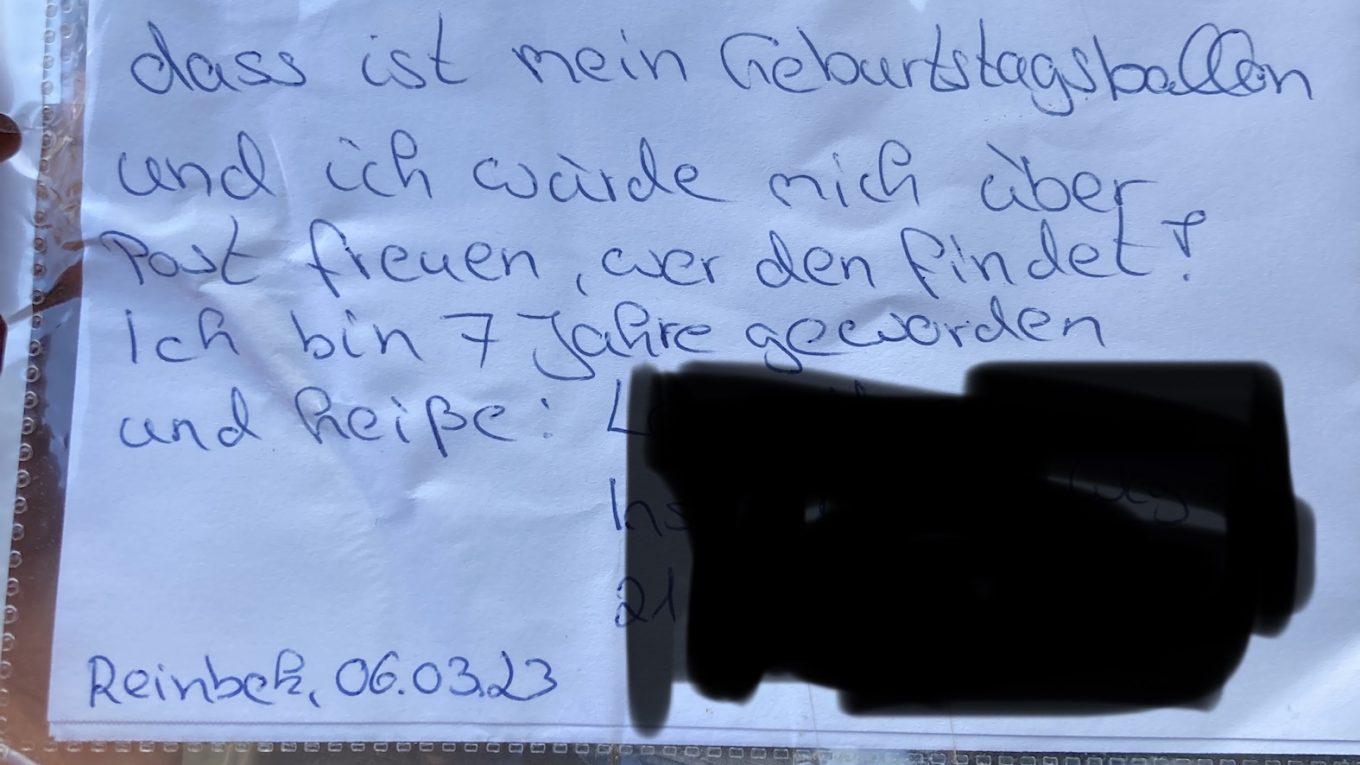 dass ist mein Geburtstagsballon
und ich würde mich über
Post freuen, wer den findet!
Ich bin 7 Jahre geworden
und heiße:
Reinbek, 06.03.23